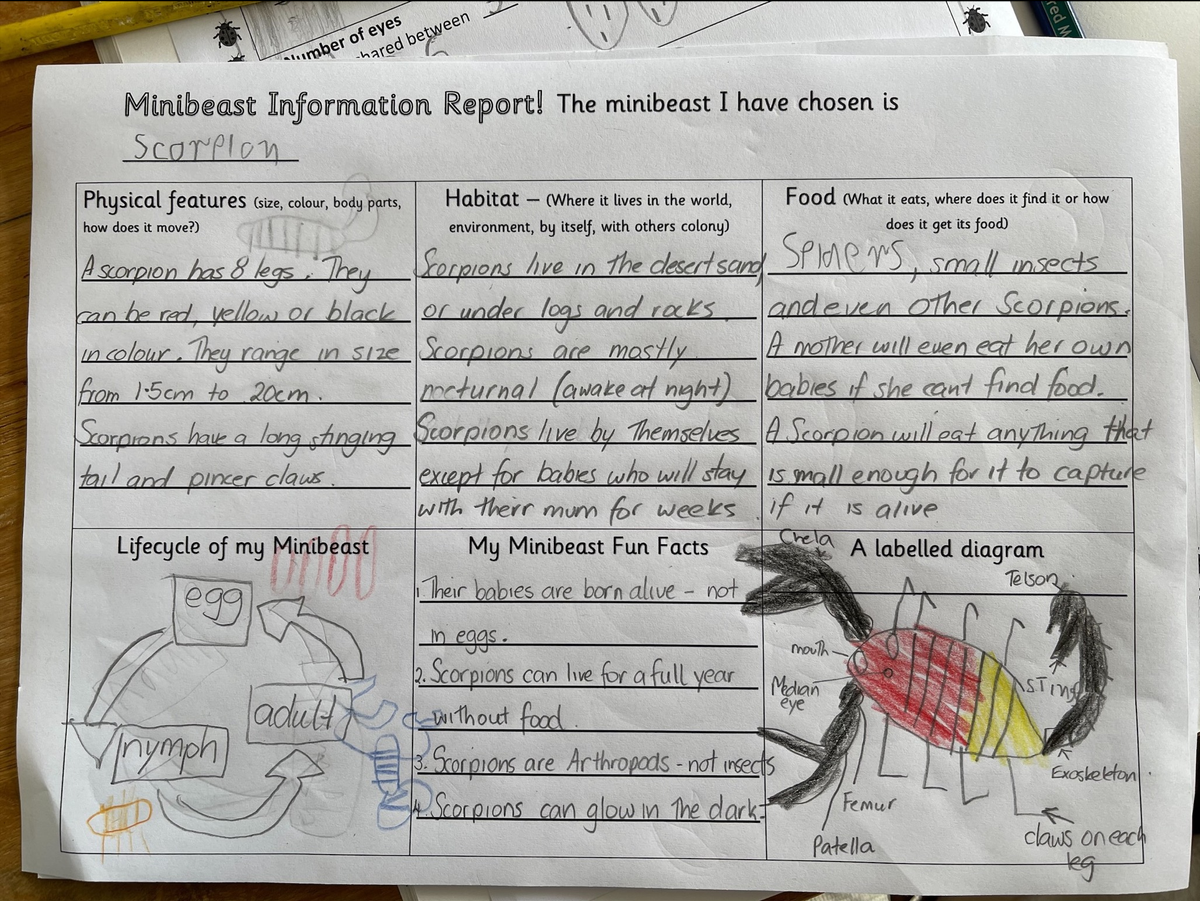 Number of eyes
shared between
Minibeast Information Report! The minibeast I have chosen is
Scorpion
Physical features (size, colour, body parts,
how does it move?)
A scorpion has 8 legs. They
can be red, yellow or black
in colour. They range in size
from 1.5cm to 20cm.
Scorpions have a long stinging
tail and pincer claws.
Habitat – (Where it lives in the world,
environment, by itself, with others colony)
Scorpions live in the desert sand
or under logs and rocks.
Scorpions are mostly
nocturnal (awake at night)
Scorpions live by Themselves
except for babies who will stay
with their mum for weeks.
Food (What it eats, where does it find it or how
does it get its food)
small insects
and even other Scorpions.
A mother will even eat her own
babies if she cant find food.
A Scorpion will eat anything that
is small enough for it to capture
if it is alive
Lifecycle of my Minibeast
egg
adult
nymph
My Minibeast Fun Facts
1. Their babies are born alive - not
in eggs.
2. Scorpions can live for a full year
without food.
3. Scorpions are Arthropods - not insects
4. Scorpions can glow in the dark.
A labelled diagram
Chela
Telson
mouth
Median
eye
STing
Exoskeleton.
Femur
Patella
claws on each
leg